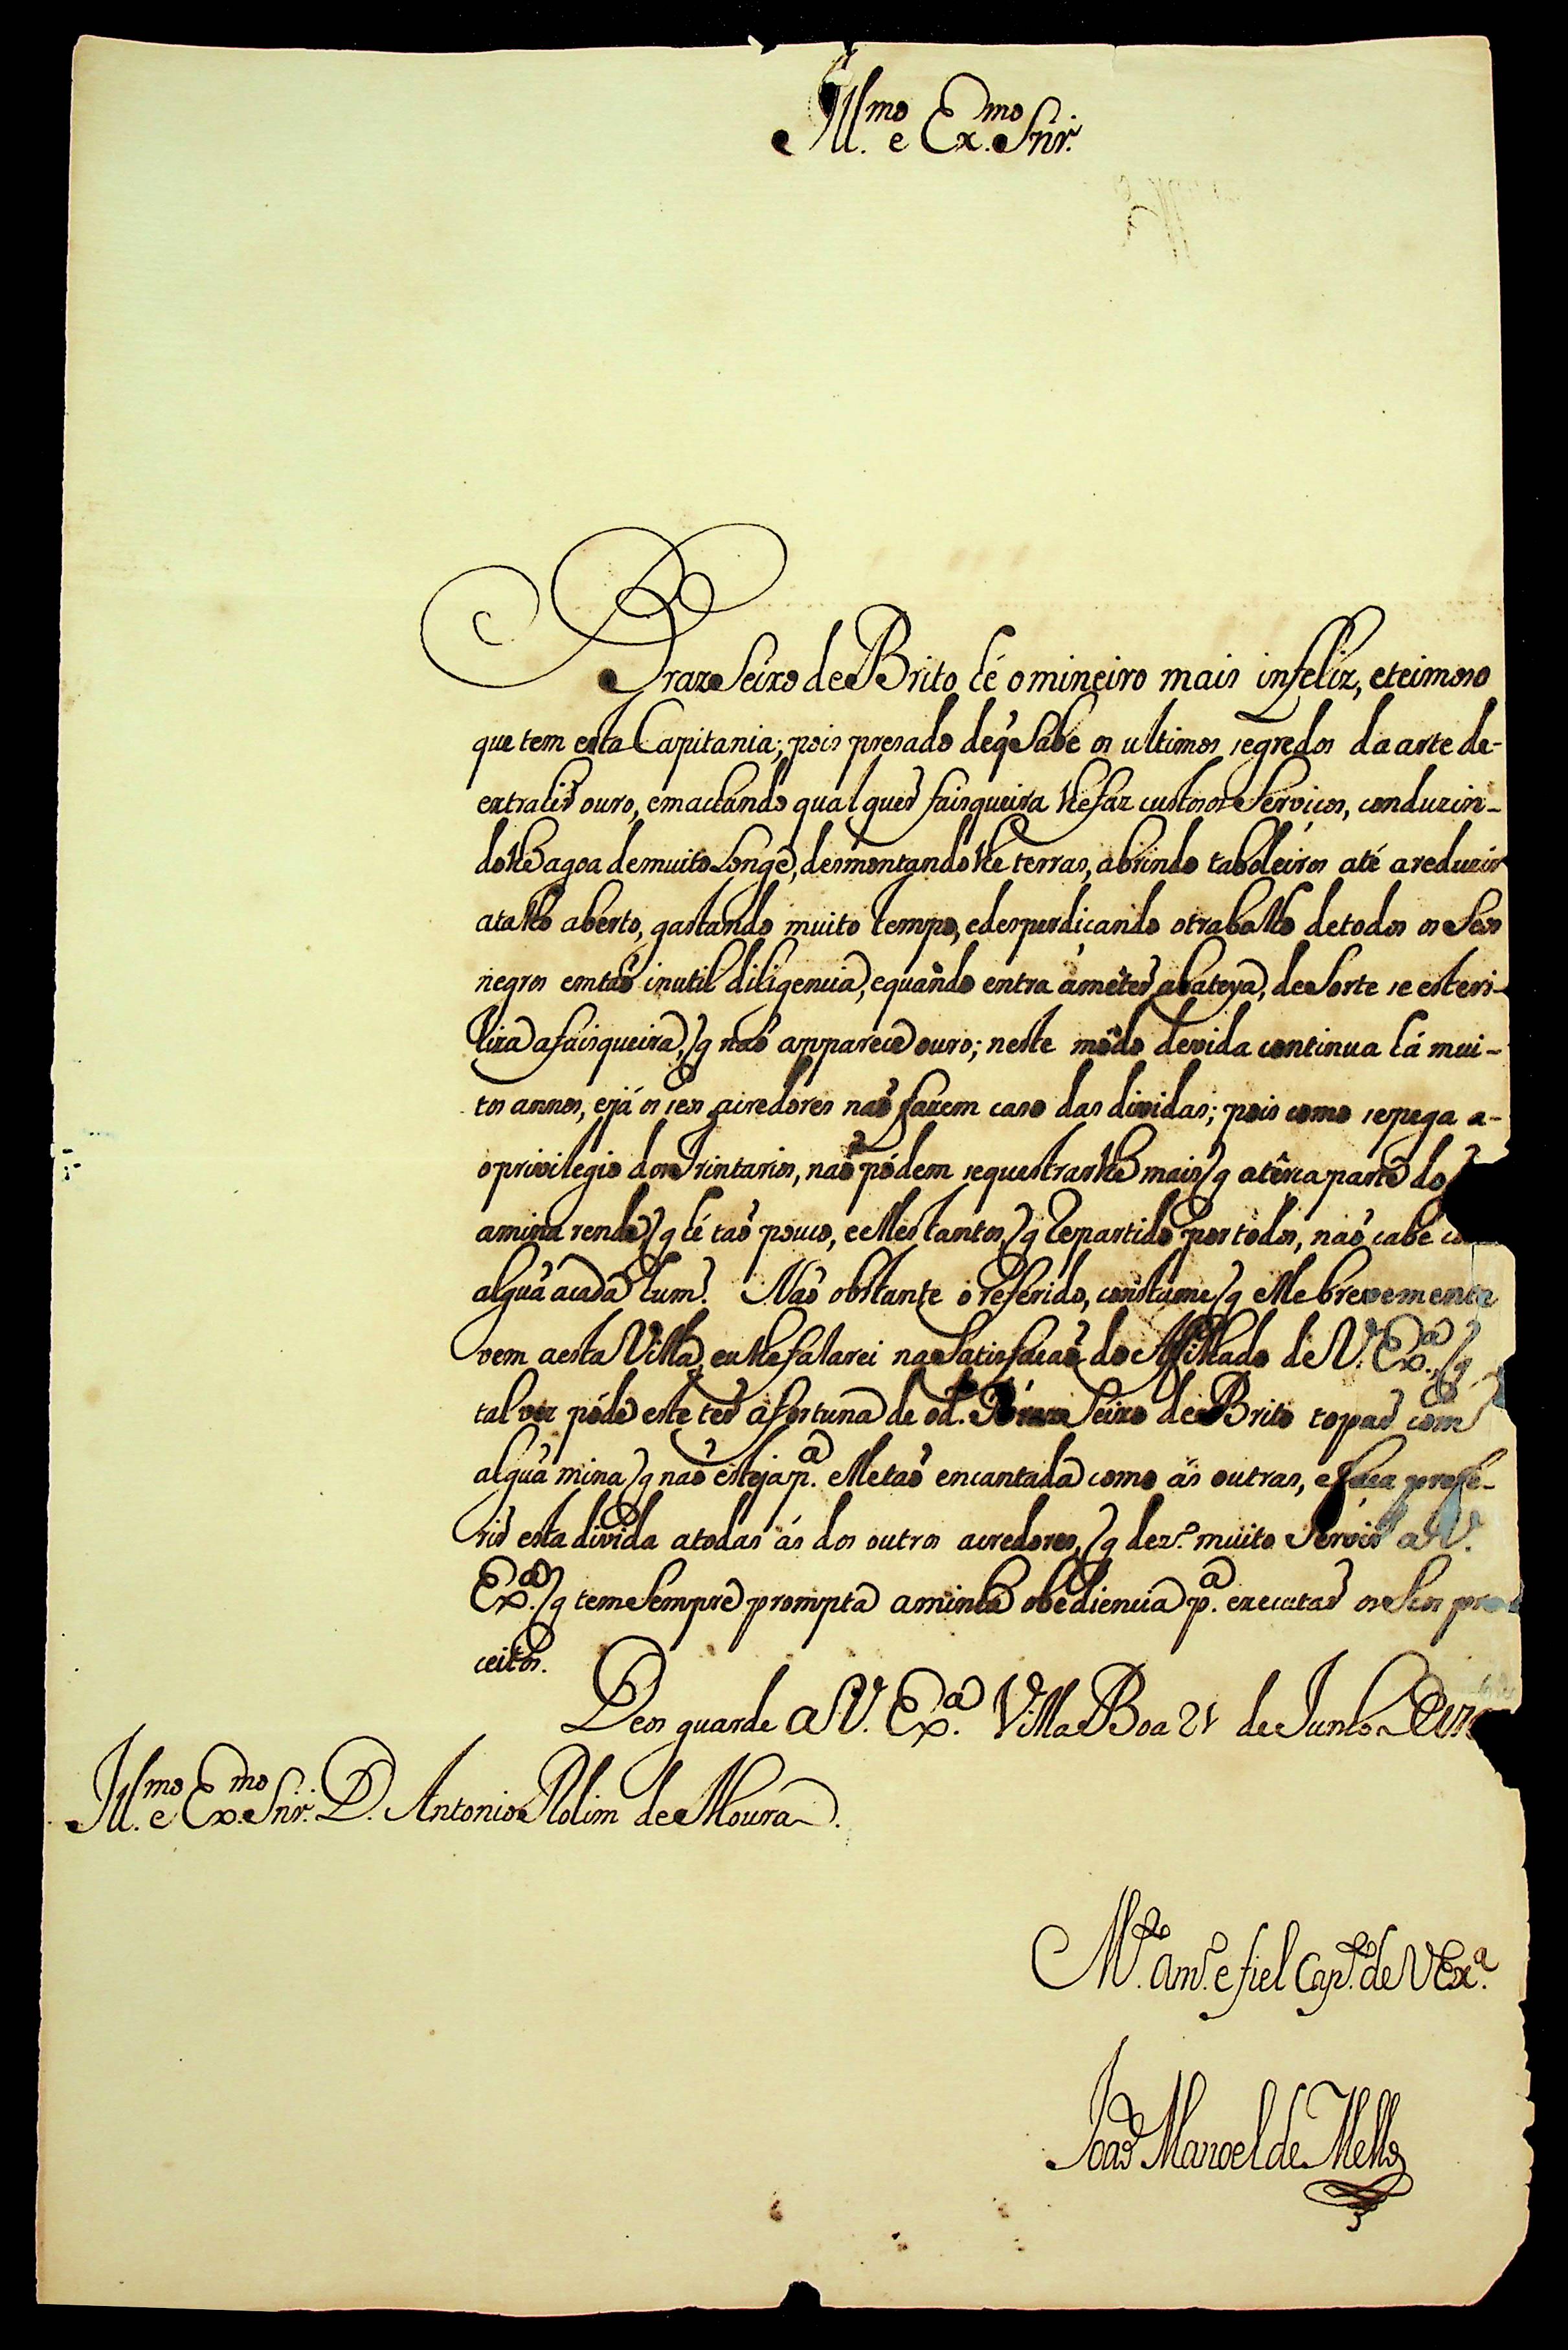 Ill.mo e Ex.mo Snr.
Braz Seixo de Brito hé o mineiro mais infeliz, e teimoso
que tem esta Capitania; pois presado de q̃ Sabe os ultimos segredos da arte de-
extrahir ouro, em achando qualquer faisqueira lhe faz custosos Serviços, conduzin-
dolhe agoa de muito Longe, desmontandolhe terras, abrindo taboleiros até a reduzir
a talho aberto, gastando muito tempo, e desperdiçando o trabalho de todos os Seos
negros em taõ inutil diligencia, e quando entra á meter a bateya, de Sorte se esteri-
liza a faisqueira, q̃ naõ apparece ouro; neste módo de vida continua há mui-
tos annos, e já os seos acredores naõ fazem caso das dividas; pois como se pega a-
o privilegio dos Trintarios, naõ pódem sequestrarlhe mais q̃ a têrca parte do q̃
a mina rende, q̃ hé taõ pouco, e elles tantos, q̃ Repartido por todos, naõ cabe
alguã a cada hum. Naõ obstante o Referido, constame q̃ elle brevemente
vem a esta Villa, eu lhe falarei na Satisfacaõ do Afilhado de V. Ex.ª, q̃
tal vez póde este ter a fortuna de o d.º Braz Seixo de Brito topar com
alguã mina q̃ naõ esteja p.ª elle taõ encantada como ás outras, e faça prefe-
rir esta divida a todas ás dos outros acredores, q̃ dez.º muito Servir a V.
Ex.ª, q̃ tem Sempre prompta a minha obediencia p.ª executar os Seos pre
ceitos.
Deos guarde a V. Ex.ª Villa Boa 21 de Junho de
Ill.mo e Ex.mo Snr. D. Antonio Rolim de Moura.
M.to Am.º e fiel Cap.to de V Ex.ª
Joaõ Manoel de Mello